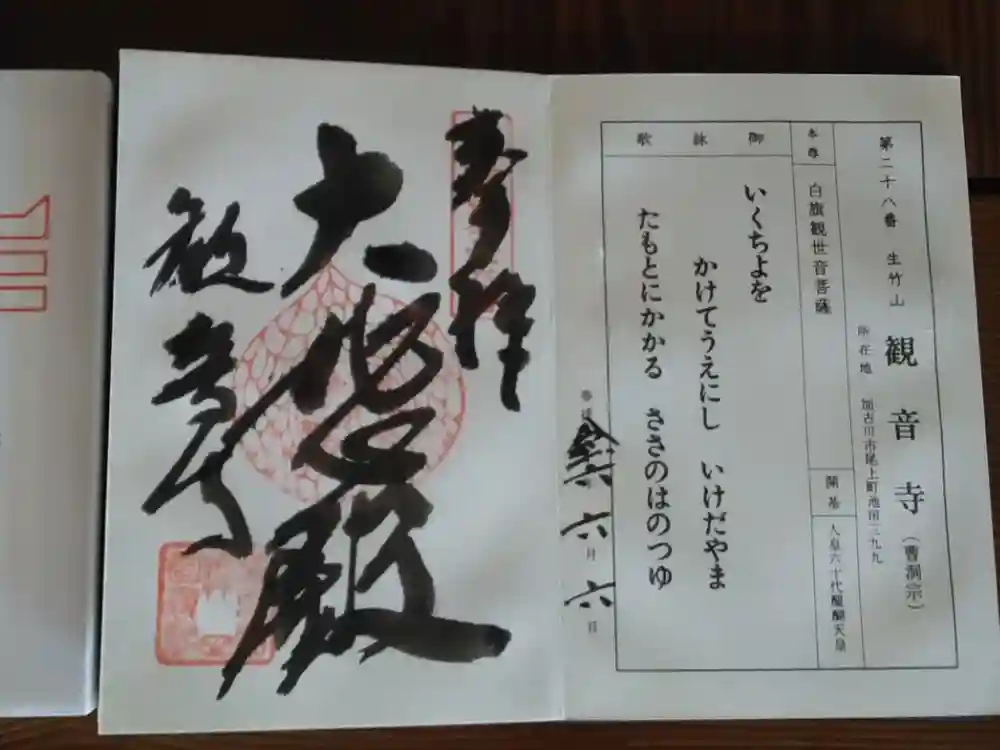 第二十八番 生竹山 観音寺（曹洞宗）
所在地 加古川市尾上町池田三九九
本尊 白旗観世音菩薩
開基 人皇六十代醍醐天皇
御詠歌
いくちよを
かけてうえにし いけだやま
たもとにかかる ささのはのつゆ
六月六日
奉拝
大悲殿
観音寺